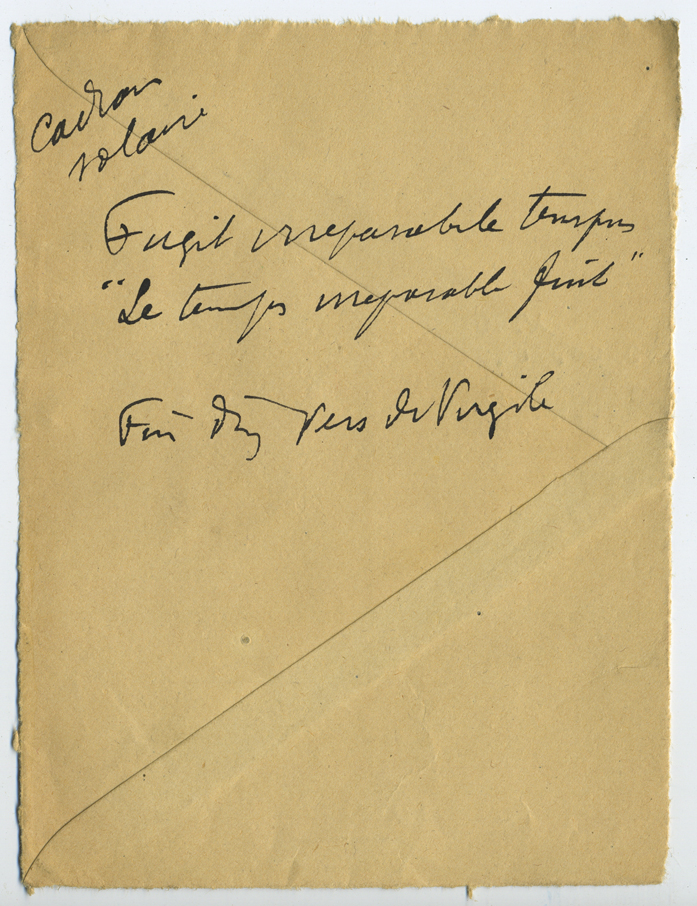 Cadran
solaire
Fugit irreparabile tempus
"Le temps irreparable fuit"
Fin d'un Vers de Virgile